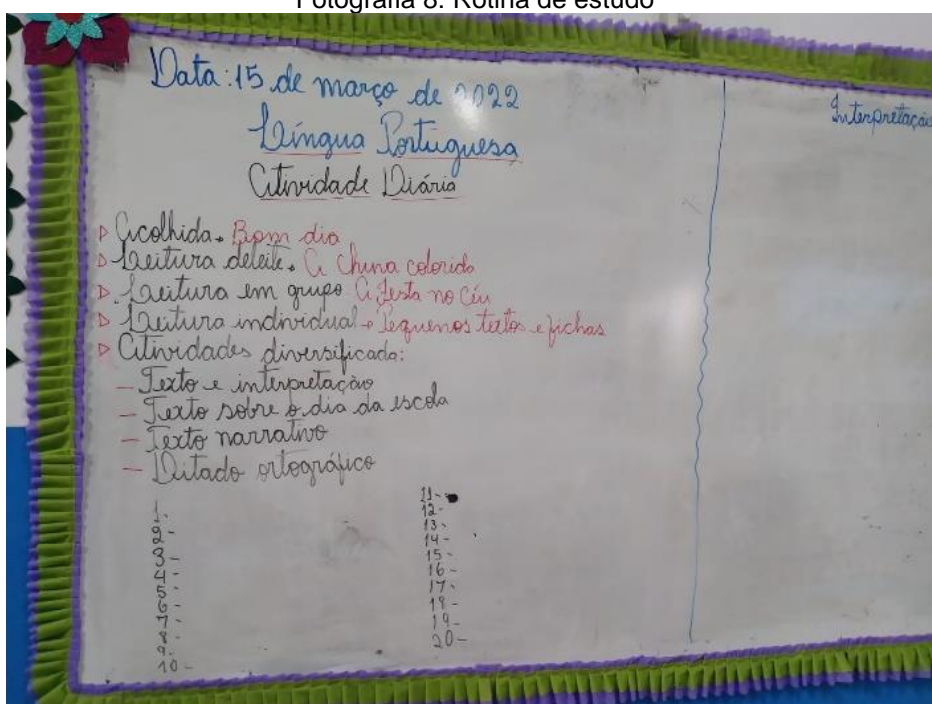 Fotografia 8: Rotina de estudo
Data: 15 de março de 2022
Língua Portuguesa
Atividade Diária
Acolhida. Bom dia
Leitura deleite. A chuva colorida
Leitura em grupo A festa no Céu
Leitura individual. Pequenos textos e fichas
Atividades diversificada:
- Texto e interpretação
- Texto sobre o dia da escola
- Texto narrativo
- Ditado ortográfico
1-
2-
3-
4-
5-
6-
7-
8-
9-
10-
11-
12-
13-
14-
15-
16-
17-
18-
19-
20-
Interpretação